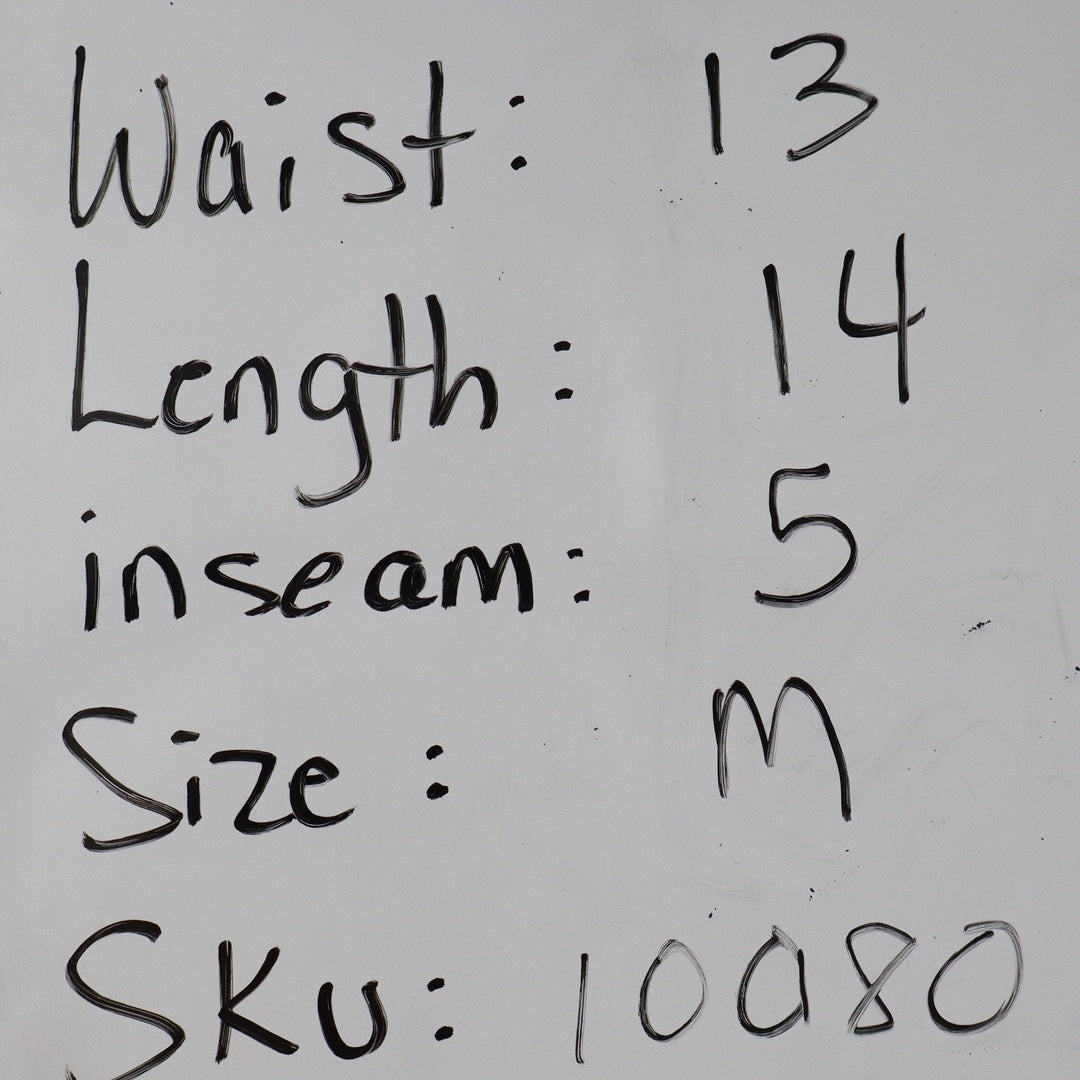 Waist: 13
Length: 14
inseam: 5
Size: M
SKU: 10080